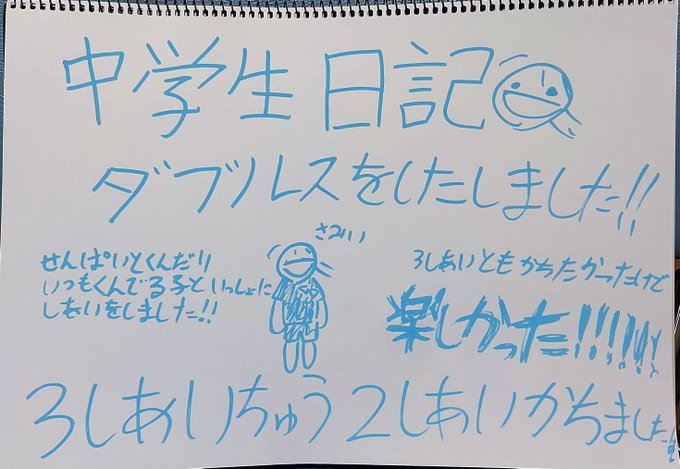 中学生日記
ダブルスをしたしました!!
せんぱいとくんだり
いつもくんでる子といっしょに
しあいをしました!!
さむい
3しあいともかちたかったけど
楽しかった!!!!!!
3しあいちゅう2しあいかちました!